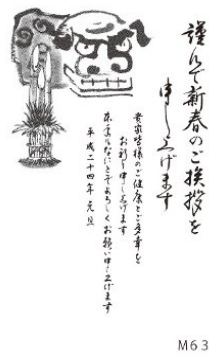 謹んで新春のご挨拶を
申し上げます
貴家皆様のご健康とご多幸を
お祈り申し上げます
本年もなにとぞよろしくお願い申し上げます
平成二十四年 元旦
M63